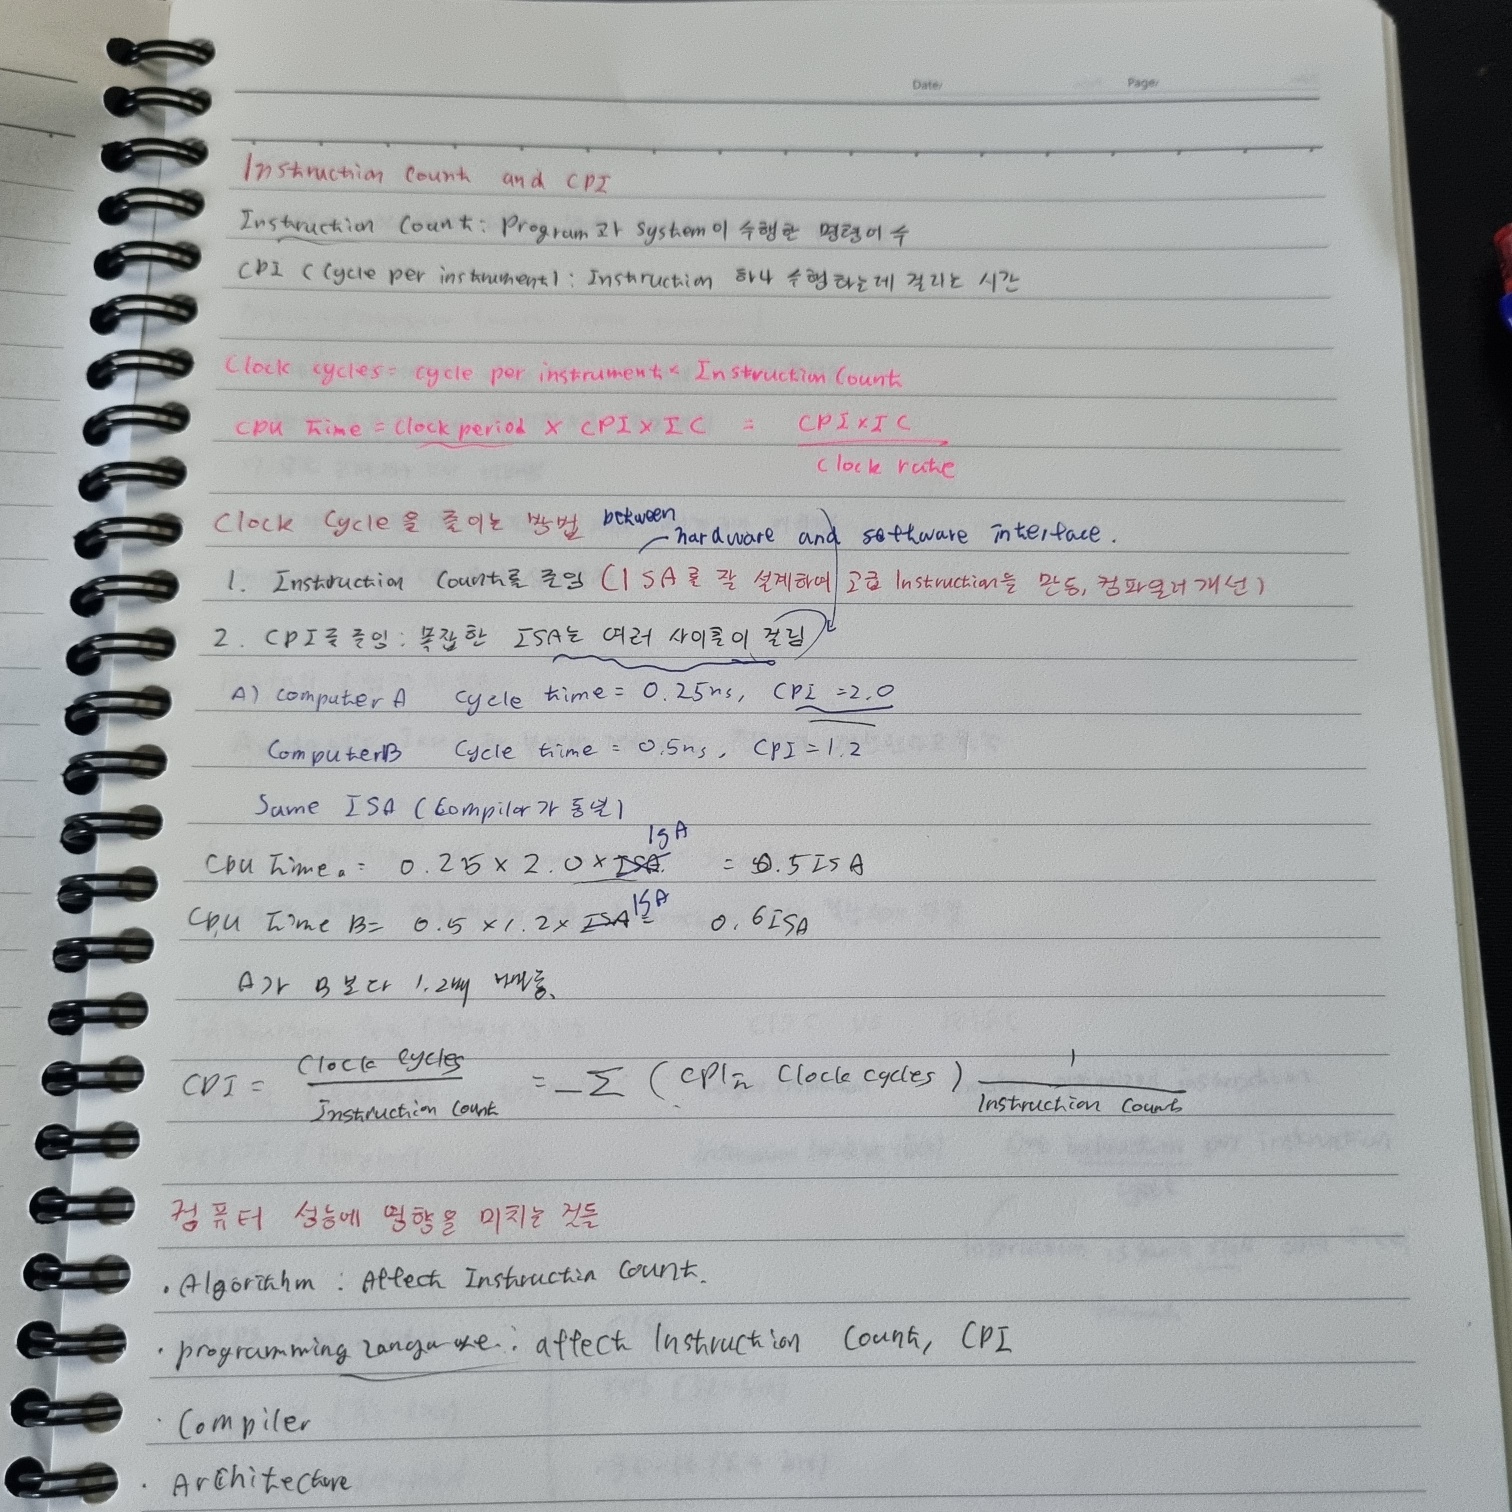 Date/ Page/
Instruction Count and CPI
Instruction Count: Program과 System이 수행한 명령어 수
CPI (Cycle per instrument): Instruction 하나 수행하는데 걸리는 시간
Clock cycles = cycle per instrument × Instruction Count
CPU time = Clock period × CPI × IC = CPI×IC
Clock rate
Clock Cycle을 줄이는 방법 between
hardware and software interface.
1. Instruction Count를 줄임 (ISA를 잘 설계하여 고급 Instruction을 만듬, 컴파일러 개선)
2. CPI를 줄임: 복잡한 ISA는 여러 사이클이 걸림
A) Computer A Cycle time = 0.25ns, CPI = 2.0
Computer B Cycle time = 0.5ns, CPI = 1.2
Same ISA (Compilor가 동일)
ISA
CPU Time A = 0.25 × 2.0 × ISA = 0.5 ISA
ISA
CPU Time B = 0.5 × 1.2 × ISA = 0.6 ISA
A가 B보다 1.2배
CPI = Clock Cycles = Σ ( Clock cycles ) 1
Instruction Count Instruction Count
컴퓨터 성능에 영향을 미치는 것들
· Algorithm : Affect Instruction Count.
· programming language : affect Instruction Count, CPI
· Compiler
· Architecture